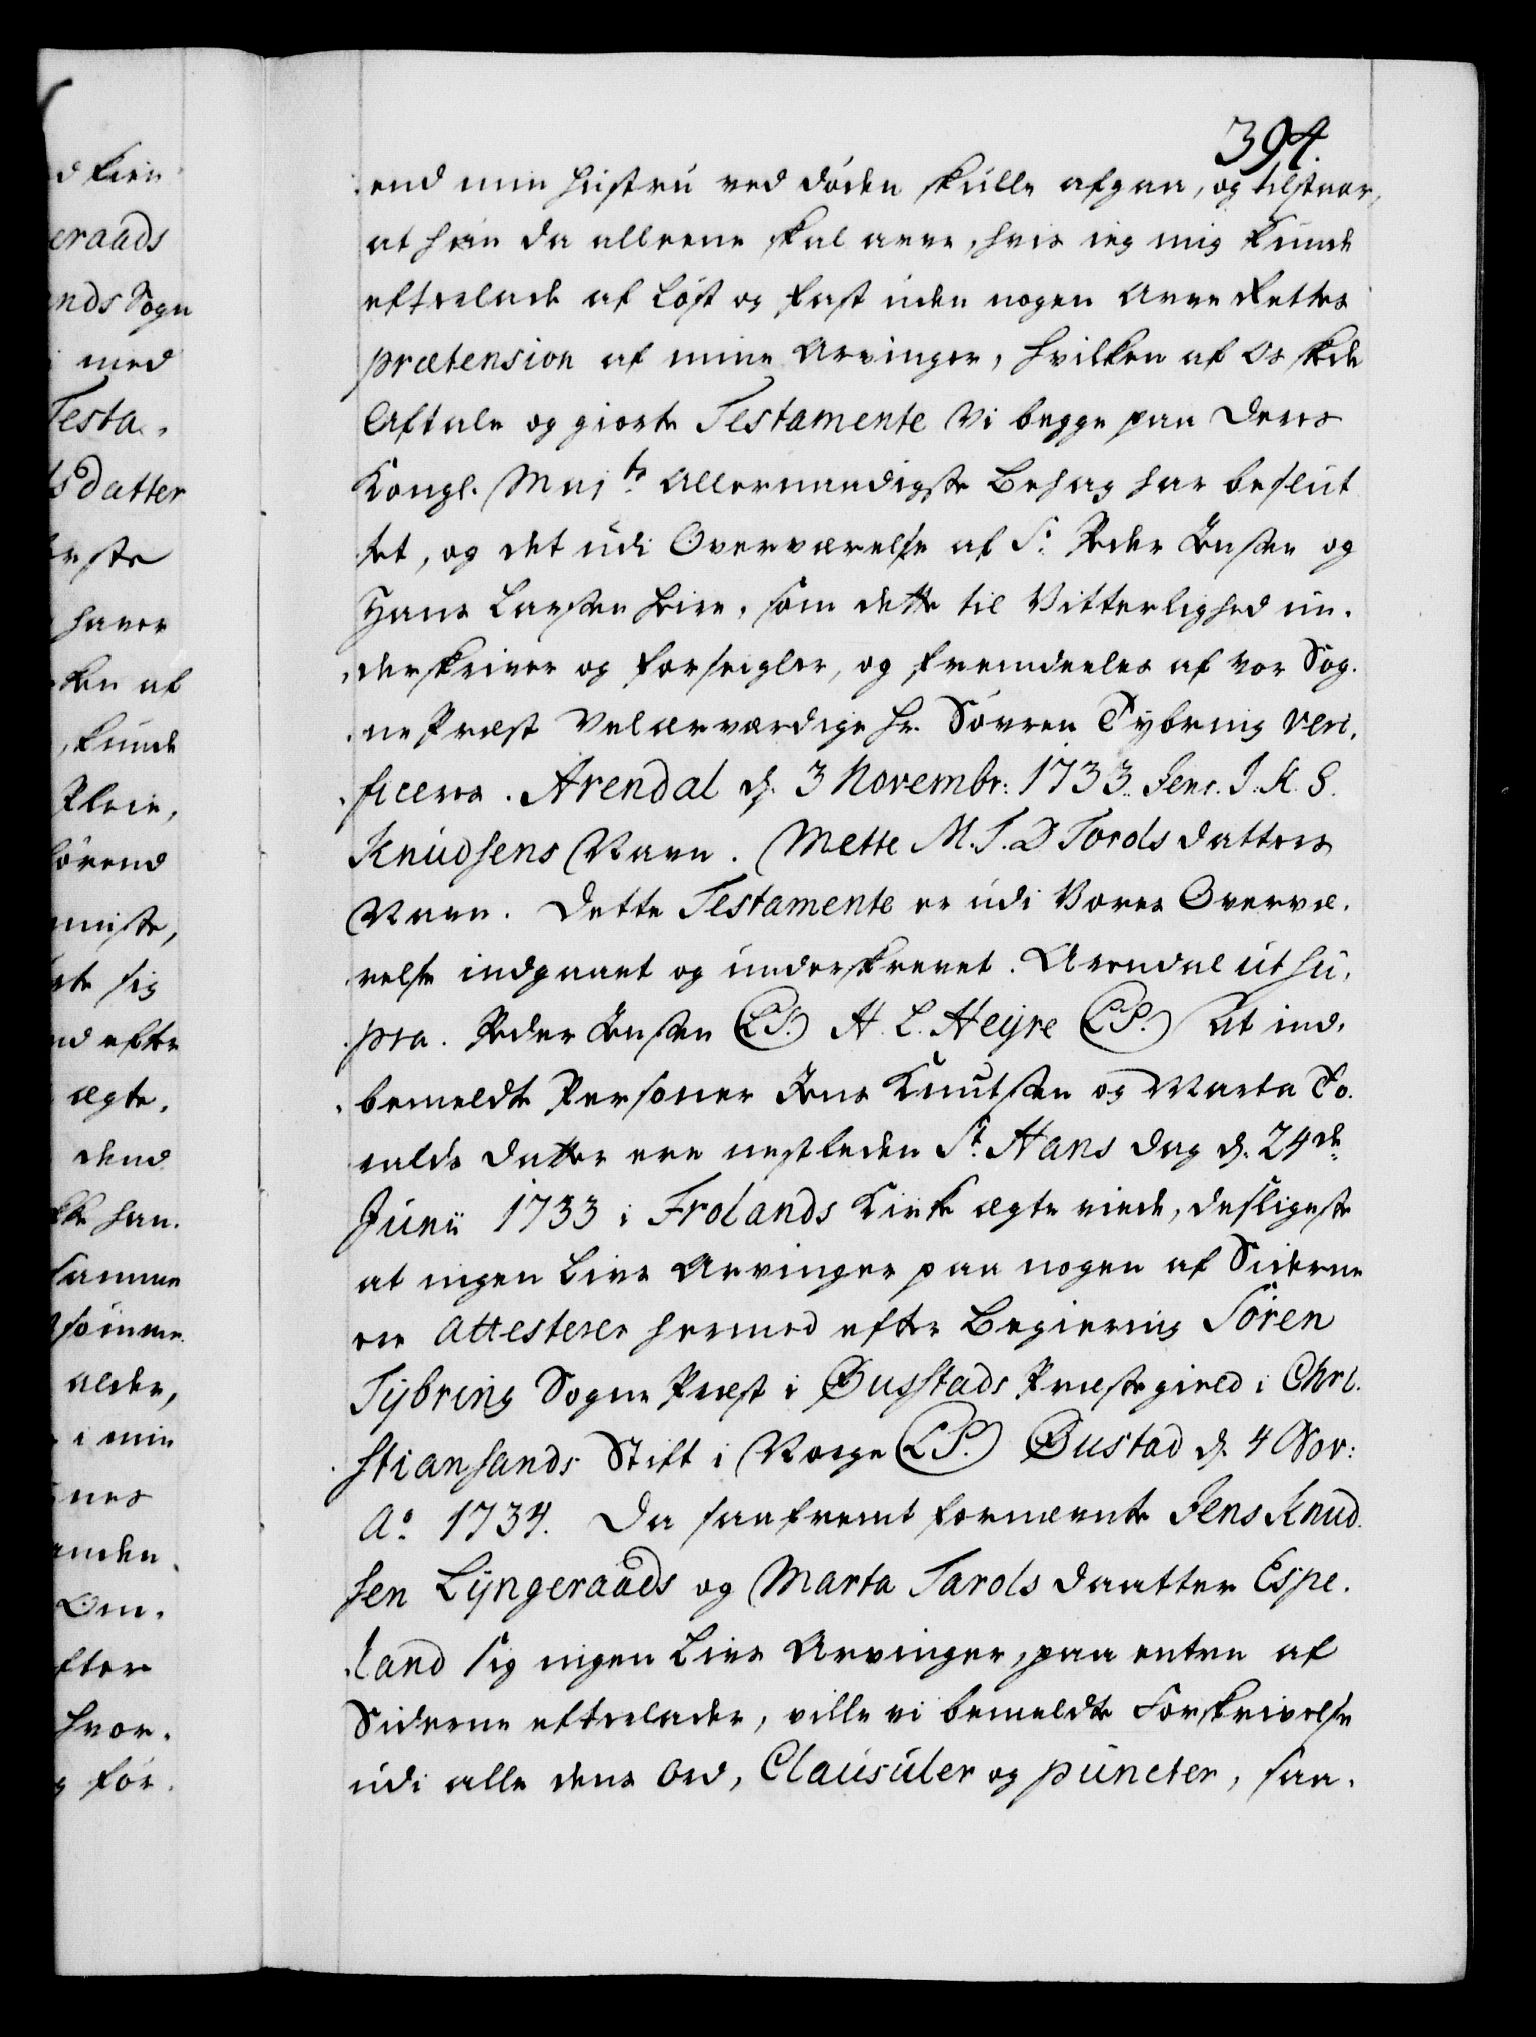 394.
end min Hustru ved døden skulle afgaa, og tilstaar,
at hun da alleene skal arve, hvis ieg mig kunde
efterlade af Løst og Fast uden nogen Arve Rettes
prætension af mine Arvinger, hvilken af os skede
Aftale og giorte Testamente Vi begge paa Deres
Kongl. Majts Allernaadigste Behag har beslut
tet, og det udi Overværelse af Sr. Peder Jensen og
Hans Larsen Heire, som dette til Vitterlighed un¬
derskriver og forseigler, og fremdeeles af vor Sog¬
ne Præst Velærværdige Hr. Søvren Tybring veri¬
ficeres. Arendal d. 3 Novembr: 1733. Jens. I. K. S.
Knudsens Navn. Mette M. T. D Tords datters
Navn. Dette Testamente er udi Vores Overvæ¬
relse indgaaet og underskrevet. Arendal ut su¬
pra. Peder Jensen (LS.) H. L. Heyre (LS.) At ind¬
bemeldte Personer Jens Knutsen og Marta To¬
ralds Datter ere nestleden St. Hans Dag d. 24de
Junii 1733 i Frolands Kirke ægte viede, desligeste
at ingen Livs Arvinger paa nogen af Siderne
er Attesterer hermed efter Begiering Sören
Tybring Sogne Præst i Øusstads Præstegield i Chri¬
stiansands Stift i Norge (LS.) Øustad d. 4 Nov:
Ao. 1734. Da saafremt fornævnte Jens Knud¬
sen Lyngeraads og Marta Tarols Daatter Espe¬
land sig ingen Livs Arvinger, paa enten af
Siderne efterlader, ville vi bemeldte Forskrivelse
udi alle dens Ord, Clausuler og puncter, saa¬